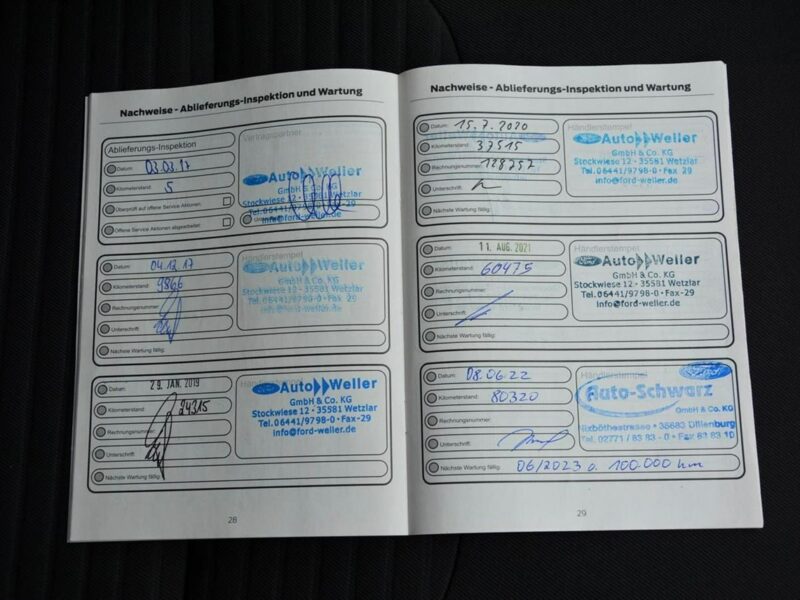 Nachweise - Ablieferungs-Inspektion und Wartung
Ablieferungs-Inspektion
Datum: 03.03.17
Kilometerstand: 5
Überprüft auf offene Service Aktionen:
Offene Service Aktionen abgearbeitet:
Vertragspartner
Ford Auto Weller
GmbH & Co. KG
Stockwiese 12 - 35581 Wetzlar
Tel. 06441/9798-0 · Fax-29
info@ford-weller.de
Datum: 04.12.17
Kilometerstand: 9866
Rechnungsnummer:
Unterschrift:
Nächste Wartung fällig:
Händlerstempel
Ford Auto Weller
GmbH & Co. KG
Stockwiese 12 - 35581 Wetzlar
Tel. 06441/9798-0 · Fax-29
info@ford-weller.de
Datum: 29. JAN. 2019
Kilometerstand: 24315
Rechnungsnummer:
Unterschrift:
Nächste Wartung fällig:
Auto Weller
GmbH & Co. KG
Stockwiese 12 - 35581 Wetzlar
Tel. 06441/9798-0 · Fax-29
info@ford-weller.de
28
Nachweise - Ablieferungs-Inspektion und Wartung
Datum: 15.7.2020
Kilometerstand: 37515
Rechnungsnummer: 128757
Unterschrift:
Nächste Wartung fällig:
Händlerstempel
Ford Auto Weller
GmbH & Co. KG
Stockwiese 12 - 35581 Wetzlar
Tel. 06441/9798-0 · Fax 29
info@ford-weller.de
Datum: 11. AUG. 2021
Kilometerstand: 60475
Rechnungsnummer:
Unterschrift:
Nächste Wartung fällig:
Händlerstempel
Ford Auto Weller
GmbH & Co. KG
Stockwiese 12 - 35581 Wetzlar
Tel. 06441/9798-0 · Fax-29
info@ford-weller.de
Datum: 08.06.22
Kilometerstand: 80320
Rechnungsnummer:
Unterschrift:
Nächste Wartung fällig: 06/2023 o. 100.000 km
Händlerstempel
Ford
Auto-Schwarz
GmbH & Co. KG
35683 Dillenburg
Tel. 02771 / 83 93 - 0 · Fax 83 93 10
29